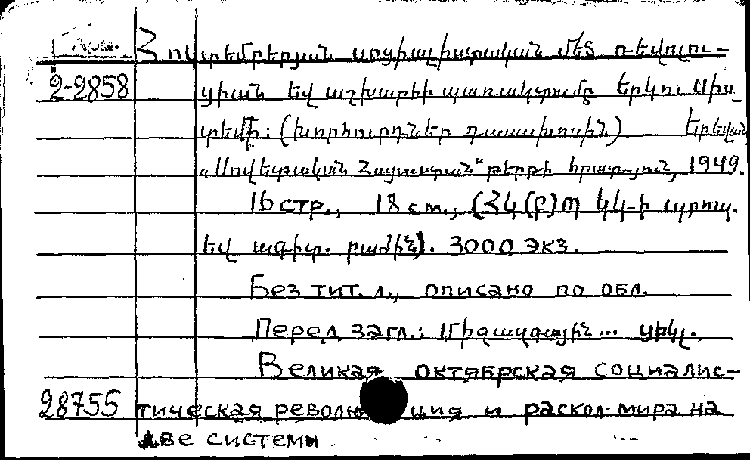 Հոկտեմբերյան սոցիալիստական մեծ ռեվոլու-
2-2858 ցիան եվ աշխարհի պառակտումը երկու սիս-
տեմի: (Խորհուրդներ դասախոսին) Երեվան
«Սովետական Հայաստան" թերթի հրատ-յուն, 1949.
16 стр., 18 см., (ՀԿ(բ)Պ ԿԿ-ի պրոպ.
եվ ագիտ. բաժին). 3000 экз.
Без тит. л., описано по обл.
Перед загл.: Միջազգային... ցիկլ.
Великая октябрская социалис-
28755 тическая революция и раскол мира на
две системы